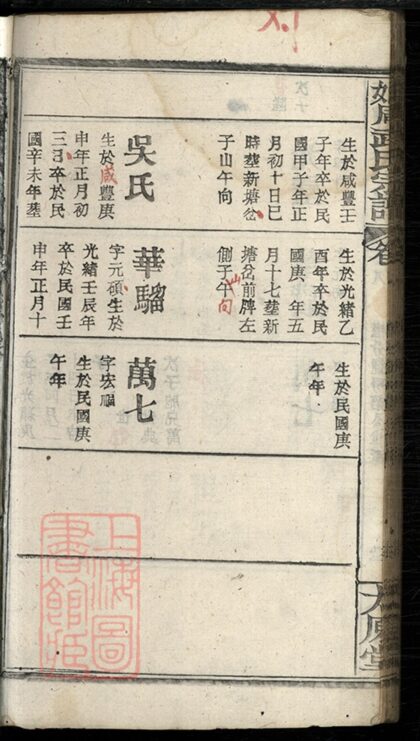 生於咸豐壬
子年卒於民
國甲子年正
月初十日巳
時塟新塘岔
子山午向
吳氏
生於咸豐庚
申年正月初
三日卒於民
國辛未年塟
生於光緒乙
酉年卒於民
國庚 年五
月十七塟新
塘岔前牌左
側子山午向
華騮
字元碩生於
光緒壬辰年
卒於民國壬
申年正月十
生於民國庚
午年
萬七
字宏
生於民國庚
午年
上海圖
書館